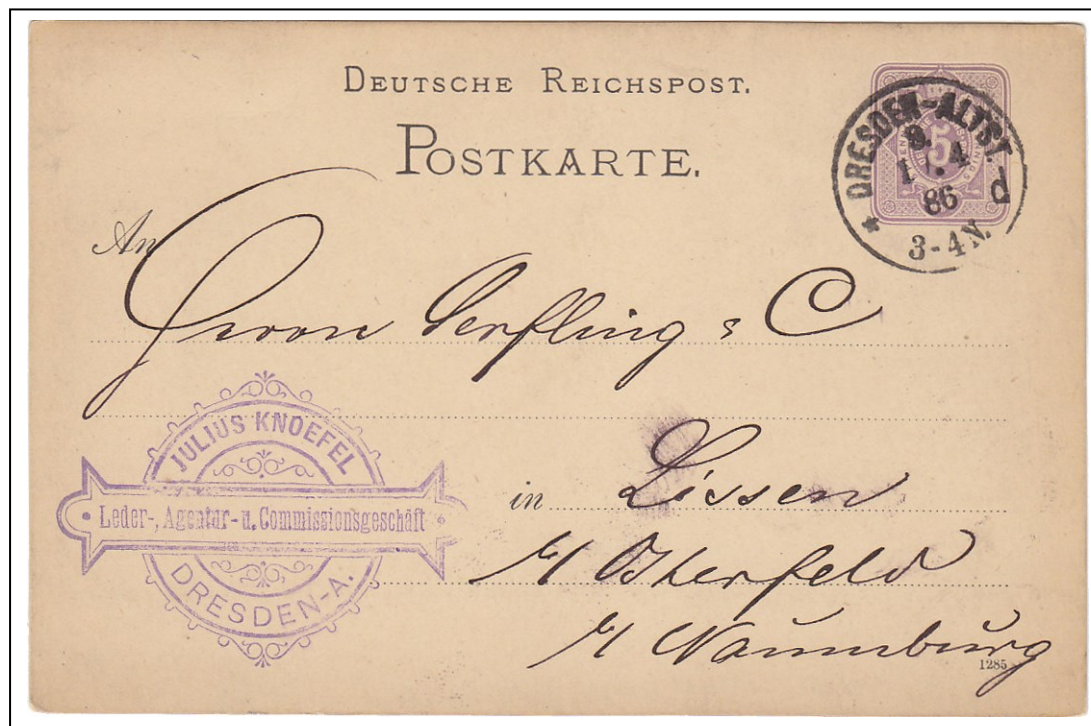 DEUTSCHE REICHSPOST.
POSTKARTE.
DRESDEN-ALTST.
4
86
3-4N.
d
5
An
Herrn Serfling & C
JULIUS KNOEFEL
Leder-, Agentur- u. Commissionsgeschäft
DRESDEN-A.
in Lissen
b/ Osterfeld
b/ Naumburg
1285